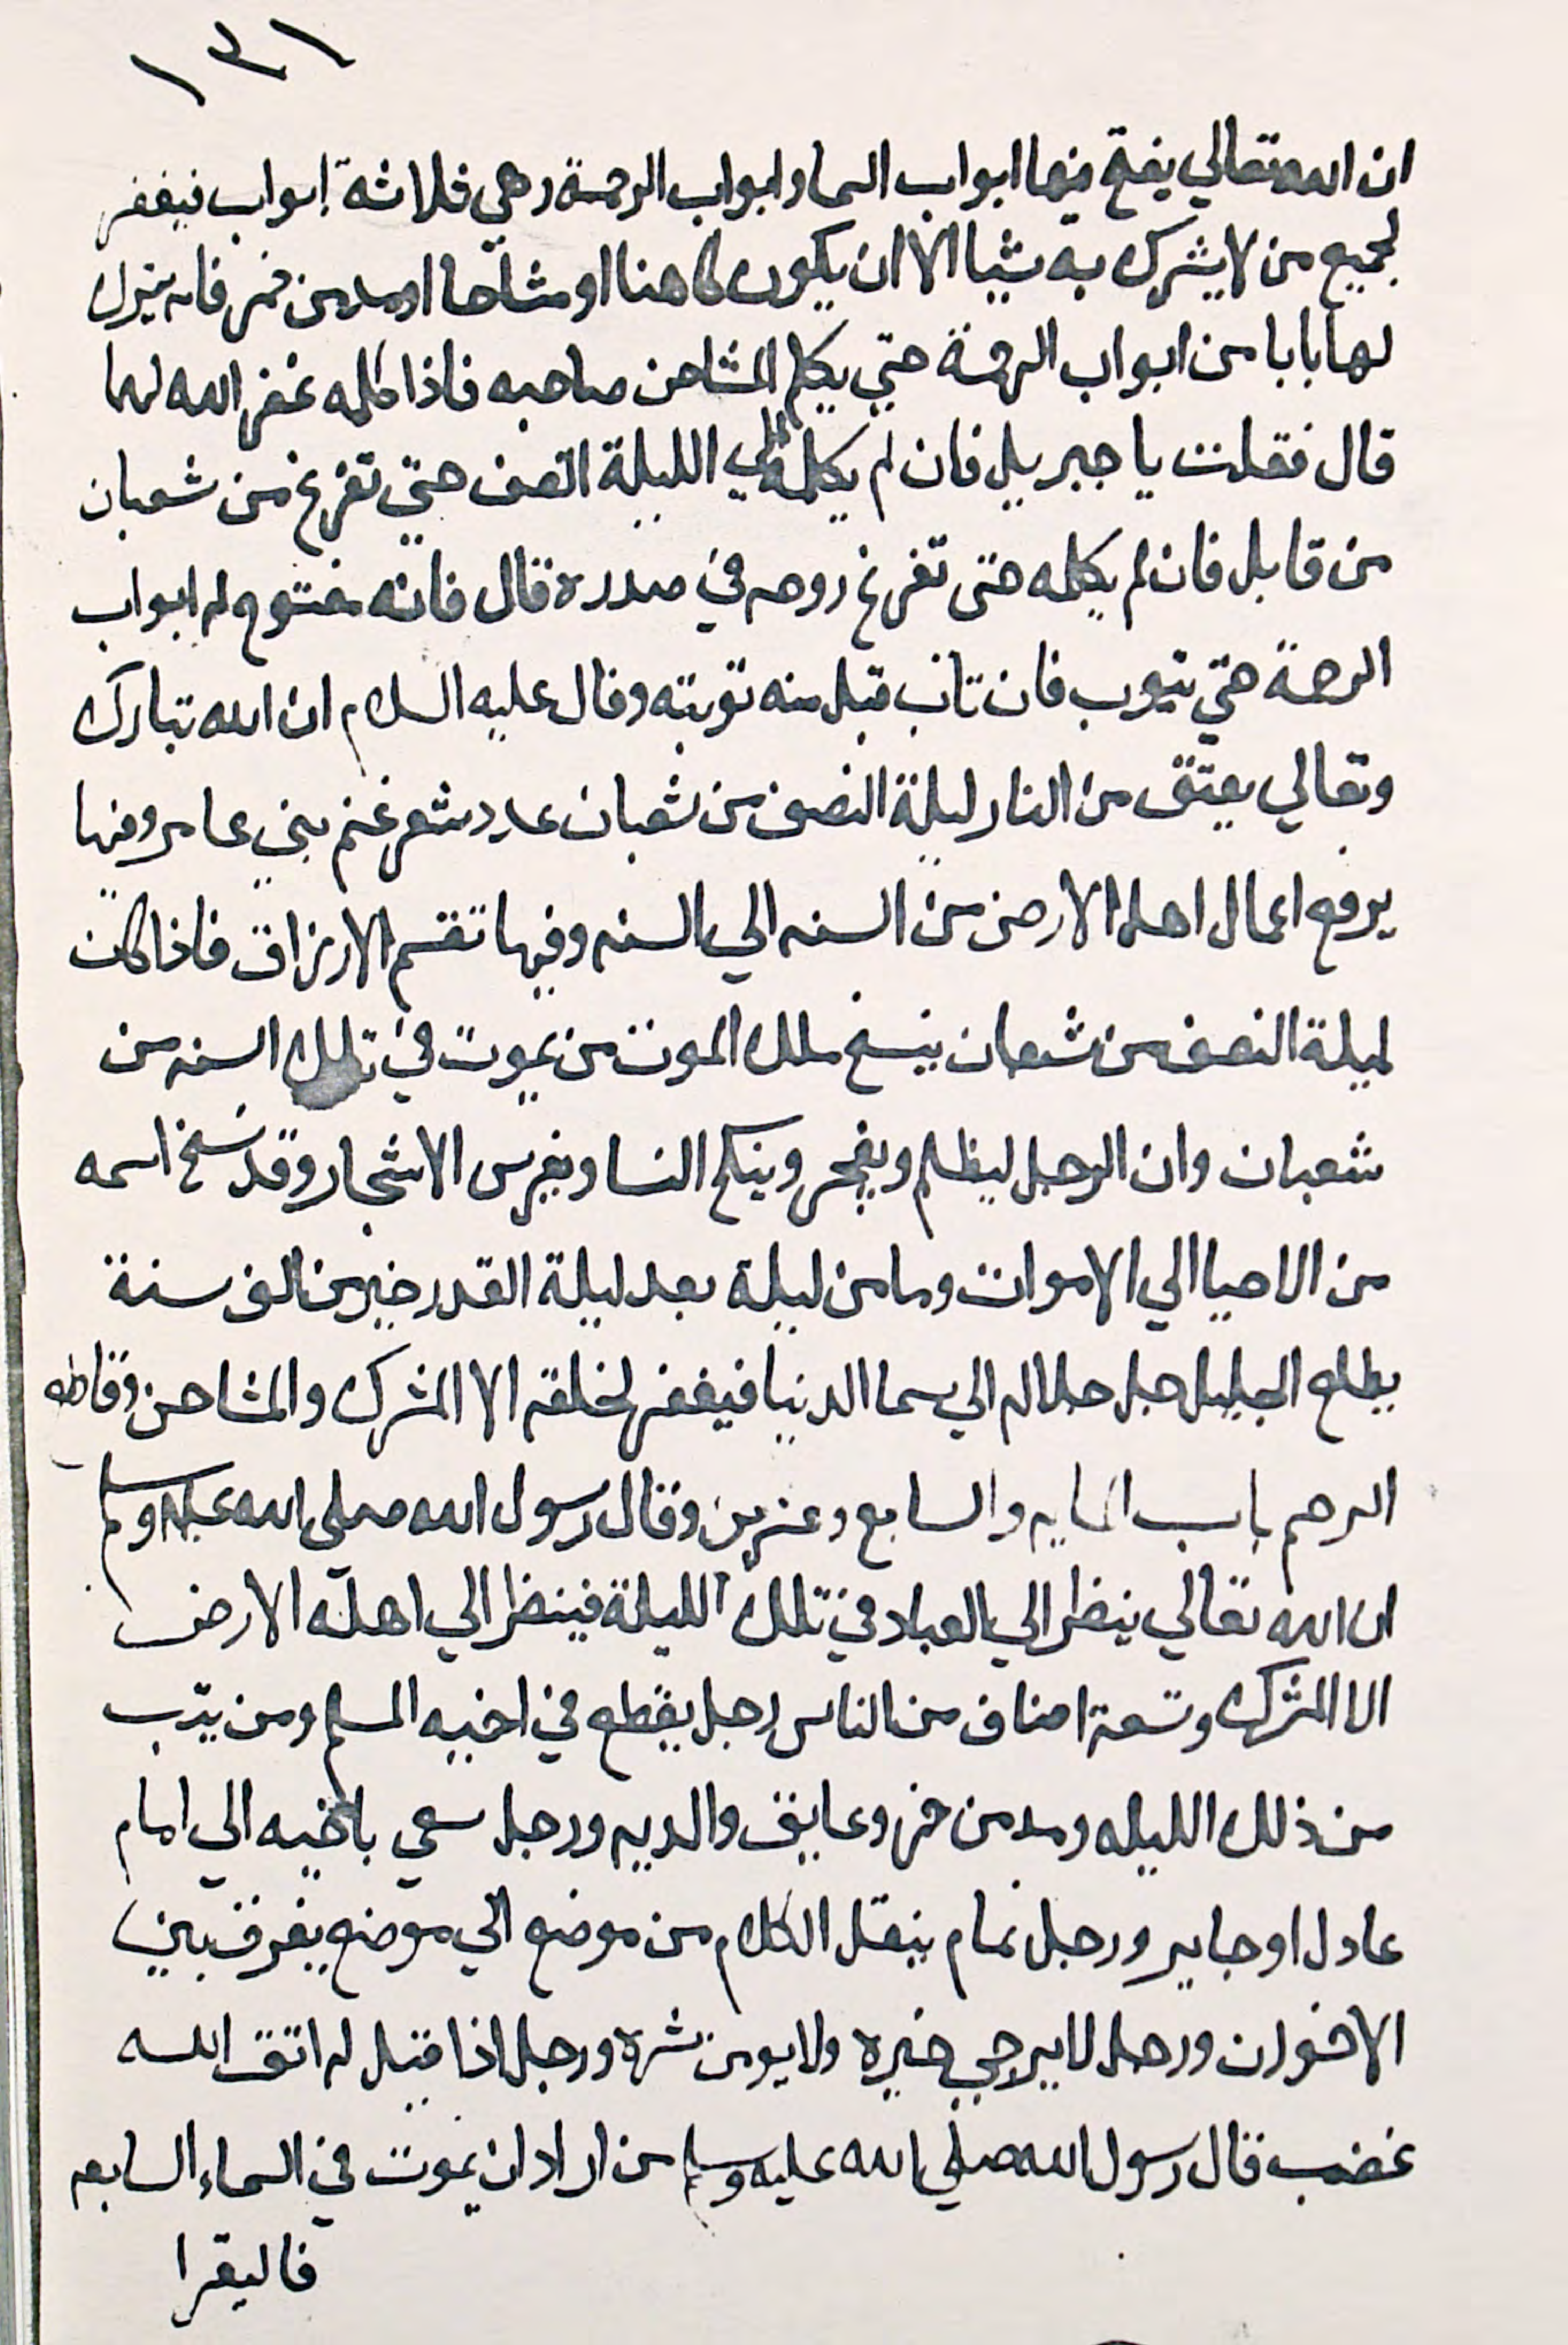 ١٣١
ان الله تعالي يفتح فيها ابواب السما وابواب الرحمة وهي ثلاثة ابواب فيغفر
لجميع من لا يشرك به شيا الا ان يكون كاهنا او مشاحنا او مدمن خمر فانه يترك
لها بابا من ابواب الرحمة حتي يكلم المشاحن صاحبه فاذا كلمه غفر الله لهما
قال فقلت يا جبريل فان لم يكلمه الي الليلة النصف حتي تفرغ من شعبان
من قابل فان لم يكلمه حتى تغرغ روحه في صدره قال فانه مفتوح له ابواب
الرحمة حتي يتوب فان تاب قبل منه توبته وقال عليه السلام ان الله تبارك
وتعالي يعتق من النار ليلة النصف من شعبان عدد شعر غنم بني عامر وفيها
يرفع اعمال اهل الارض من السنه الي السنه وفيها تقسم الارزاق فاذا كان
ليلة النصف من شعبان ينسخ ملك الموت من يموت في تلك السنه من
شعبان وان الرجل ليظلم ويفجر وينكح النسا ويغرس الاشجار وقد نسخ اسمه
من الاحيا الي الاموات وما من ليلة بعد ليلة القدر خير من الف سنة
يطلع الجليل جل جلاله الي سما الدنيا فيغفر لخلقه الا المشرك والمشاحن وقاطع
الرحم باب المايه والسابع وعشرين وقال رسول الله صلي الله عليه وسلم
ان الله تعالي ينظر الي العباد في تلك الليلة فينظر الي اهل الارض
الا المشرك وتسعة اصناف من الناس رجل يقطع في اخيه المسلم ومن
من ذلك الليله ومدمن خمر وعايق والديه ورجل سعي باخيه الي امام
عادل او جاير ورجل نمام ينقل الكلام من موضع الي موضع يفرق بين
الاخوان ورجل لا يرجي خيره ولا يومن شره ورجل اذا قيل له اتق الله
غضب قال رسول الله صلي الله عليه وسلم من اراد ان يموت في السماء السابعه
فاليقرا